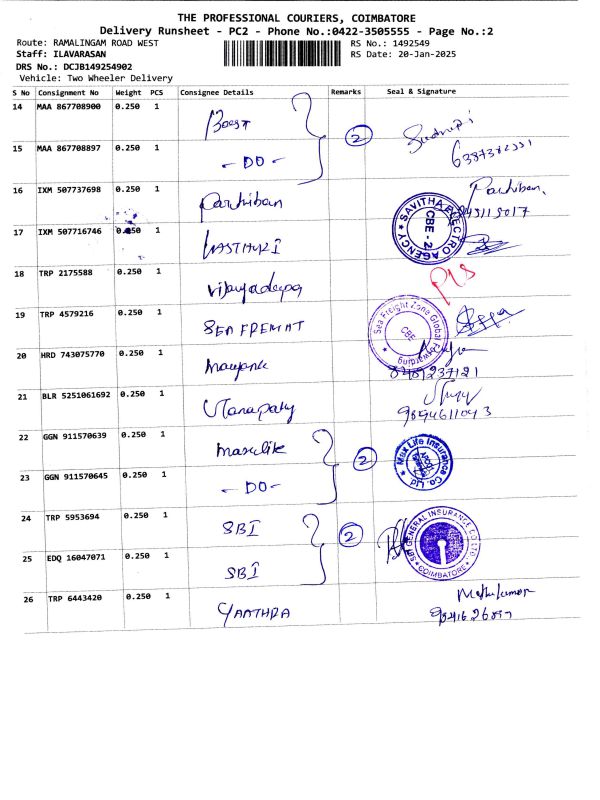 THE PROFESSIONAL COURIERS, COIMBATORE
Delivery Runsheet - PC2 - Phone No.:0422-3505555 - Page No.:2
Route: RAMALINGAM ROAD WEST RS No.: 1492549
Staff: ILAVARASAN RS Date: 20-Jan-2025
DRS No.: DCJB149254902
Vehicle: Two Wheeler Delivery
S No Consignment No Weight PCS Consignee Details Remarks Seal & Signature
14 MAA 867708900 0.250 1
2
15 MAA 867708897 0.250 1 - DO -
16 IXM 507737698 0.250 1 Parthiban Parthiban,
17 IXM 507716746 0.250 1 KASTHURI SAVITHA ELECTRO AGENCY CBE - 2
18 TRP 2175588 0.250 1 Vijayadeepa
19 TRP 4579216 0.250 1 SEA FREIGHT Sea Freight Zone Global Forwarding CBE
20 HRD 743075770 0.250 1 Mayank
8489237121
21 BLR 5251061692 0.250 1
22 GGN 911570639 0.250 1
2 Max Life Insurance Co. Ltd
23 GGN 911570645 0.250 1 - DO -
24 TRP 5953694 0.250 1 SBI
2 SBI GENERAL INSURANCE CO LTD COIMBATORE
25 EDQ 16047071 0.250 1 SBI
26 TRP 6443420 0.250 1 YAATHRA Muthukumar